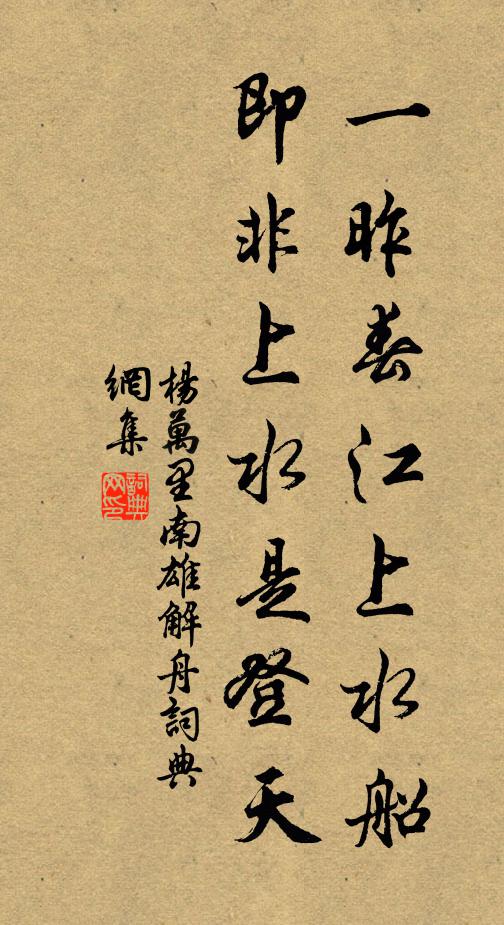 一昨春江上水船
即非上水是登天
楊萬里南雄解舟詞典
網集
詞典
网印